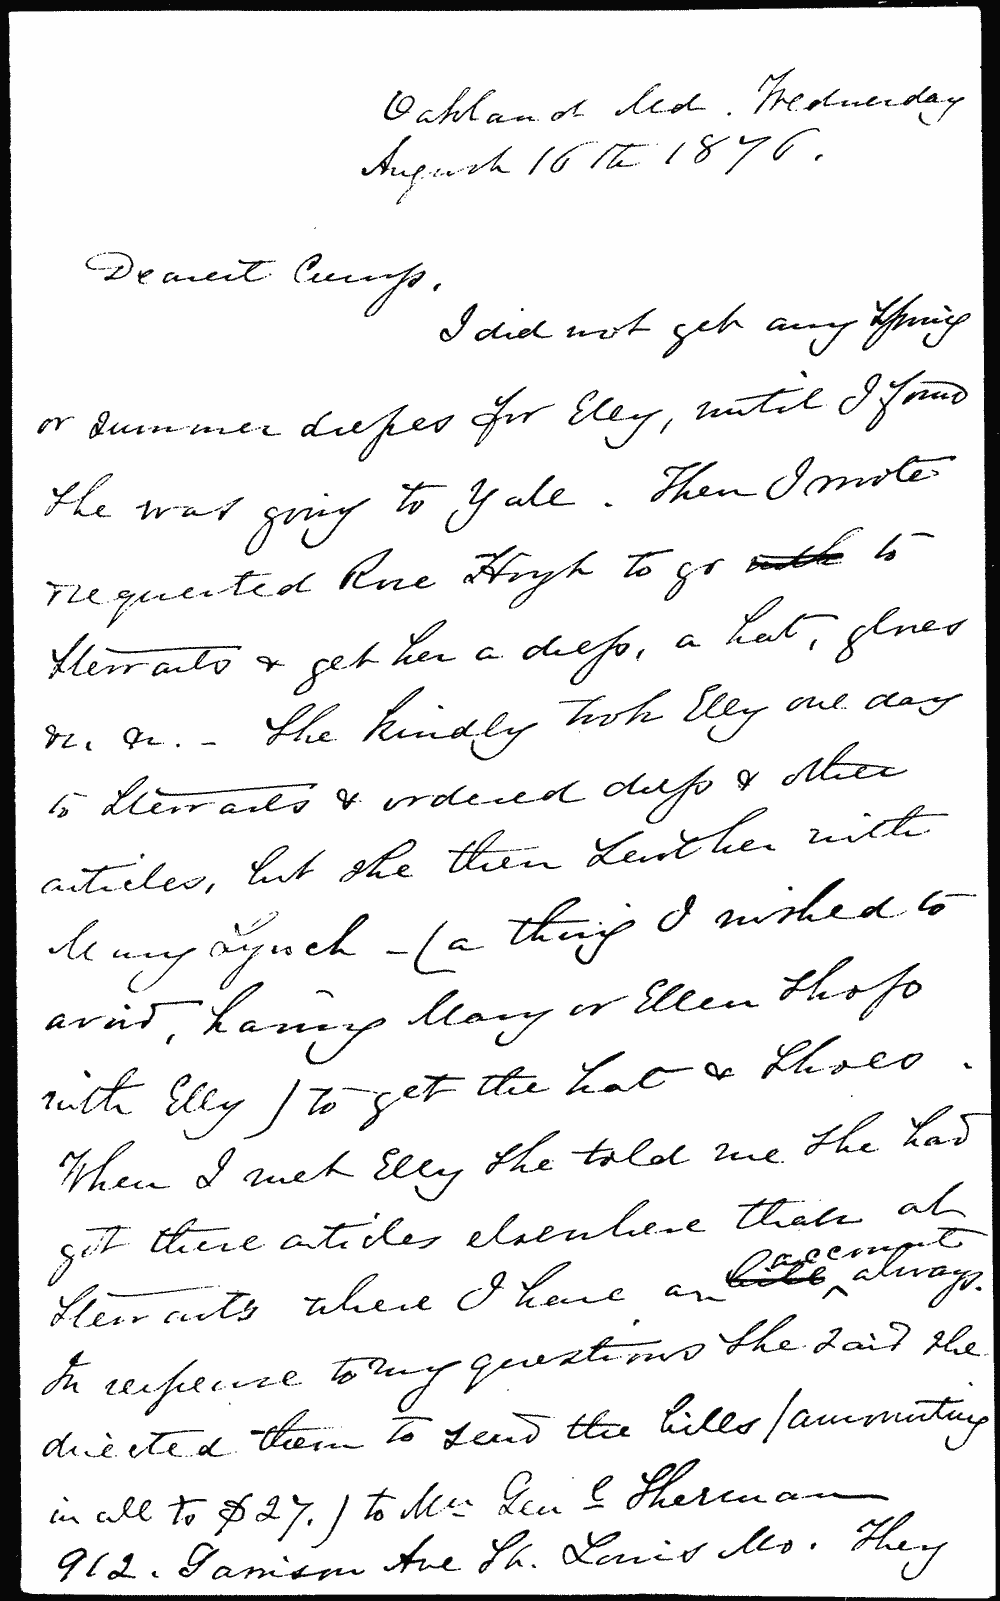 Oakland Md. Wednesday
August 16th 1876.
Dearest Cump,
I did not get any Spring
or summer dresses for Elly, until I found
She was going to Yale. Then I wrote
requested Rose Hoyt to go with to
Stewarts & get her a dress, a hat, gloves
&c. &c. - She kindly took Elly one day
to Stewarts & ordered dress & other
articles, but she then sent her with
Mary Lynch - (a thing I wished to
avoid, having Mary or Ellen Shop
with Elly) to get the hat & Shoes.
When I met Elly She told me She had
got these articles elsewhere than at
account
Stewart's where I have an bill ^ always.
In response to my questions She said she
directed them to send the bills (amounting
in all to $27.) to Mrs Gen l Sherman
912. Garrison Ave St. Louis Mo. They